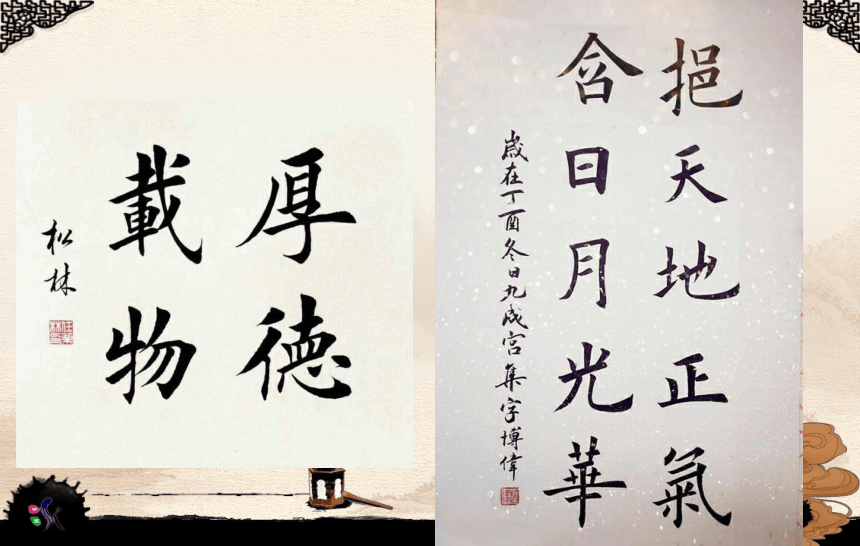 厚德
載物
松林
挹天地正氣
含日月光華
歲在丁酉冬日九成宮集字博偉